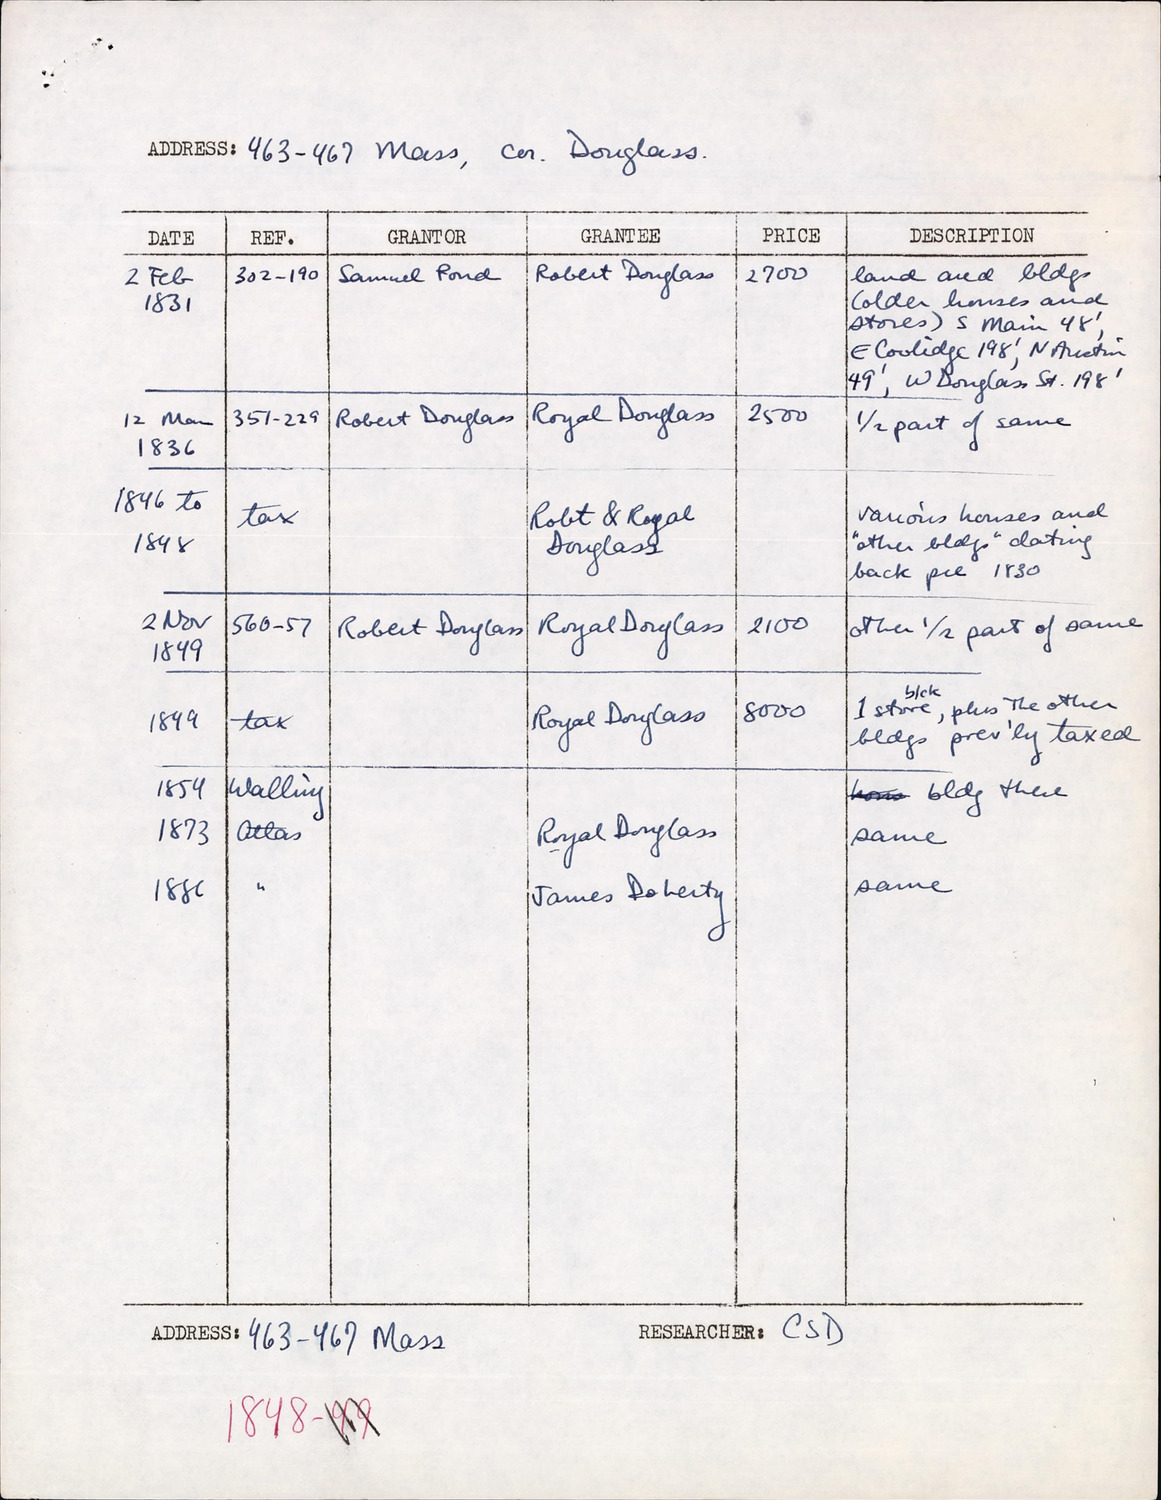 ADDRESS: 463-467 Mass, cor. Douglass.
DATE REF. GRANTOR GRANTEE PRICE DESCRIPTION
2 Feb 302-190 Samuel Pond Robert Douglass 2700 land and bldgs
1831 (older houses and
stores) S Main 48',
E Coolidge 198', N Austin
49', W Douglass St. 198'
12 Mar 351-229 Robert Douglass Royal Douglass 2500 1/2 part of same
1836
1846 to tax Robt & Royal various houses and
1848 Douglass "other bldgs" dating
back pre 1830
2 Nov 560-57 Robert Douglass Royal Douglass 2100 other 1/2 part of same
1849
1849 tax Royal Douglass 8000 1 store blck, plus the other
bldgs prev'ly taxed
1854 Walling bldg there
1873 Atlas Royal Douglass same
1886 " James Doherty same
ADDRESS: 463-467 Mass RESEARCHER: CSD
1848-